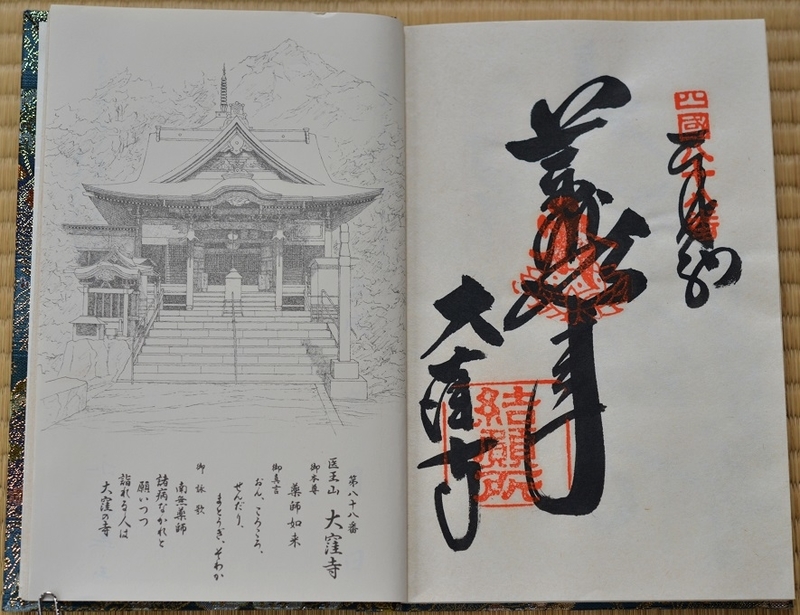 四國八十八番
奉納
大窪寺
結願所
第八十八番
医王山 大窪寺
御本尊
薬師如来
御真言
おん、ころころ、
せんだり、
まとうぎ、そわか
御詠歌
南無薬師
諸病なかれと
願いつつ
詣れる人は
大窪の寺